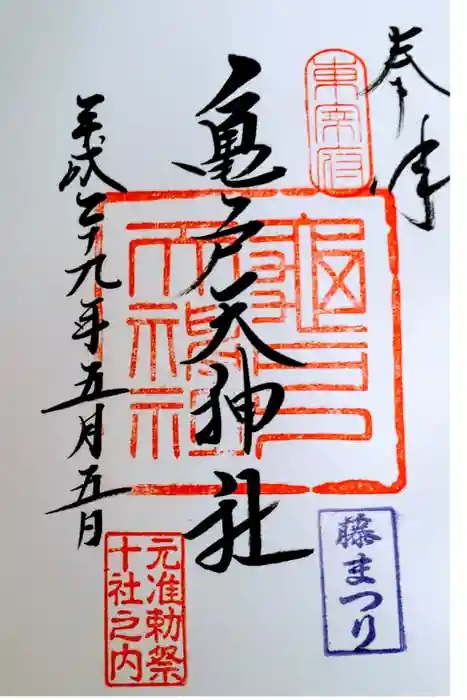 奉拝
東宰府
亀戸天神社
亀戸天神社
平成二十九年五月五日
藤まつり
元准勅祭
十社之内